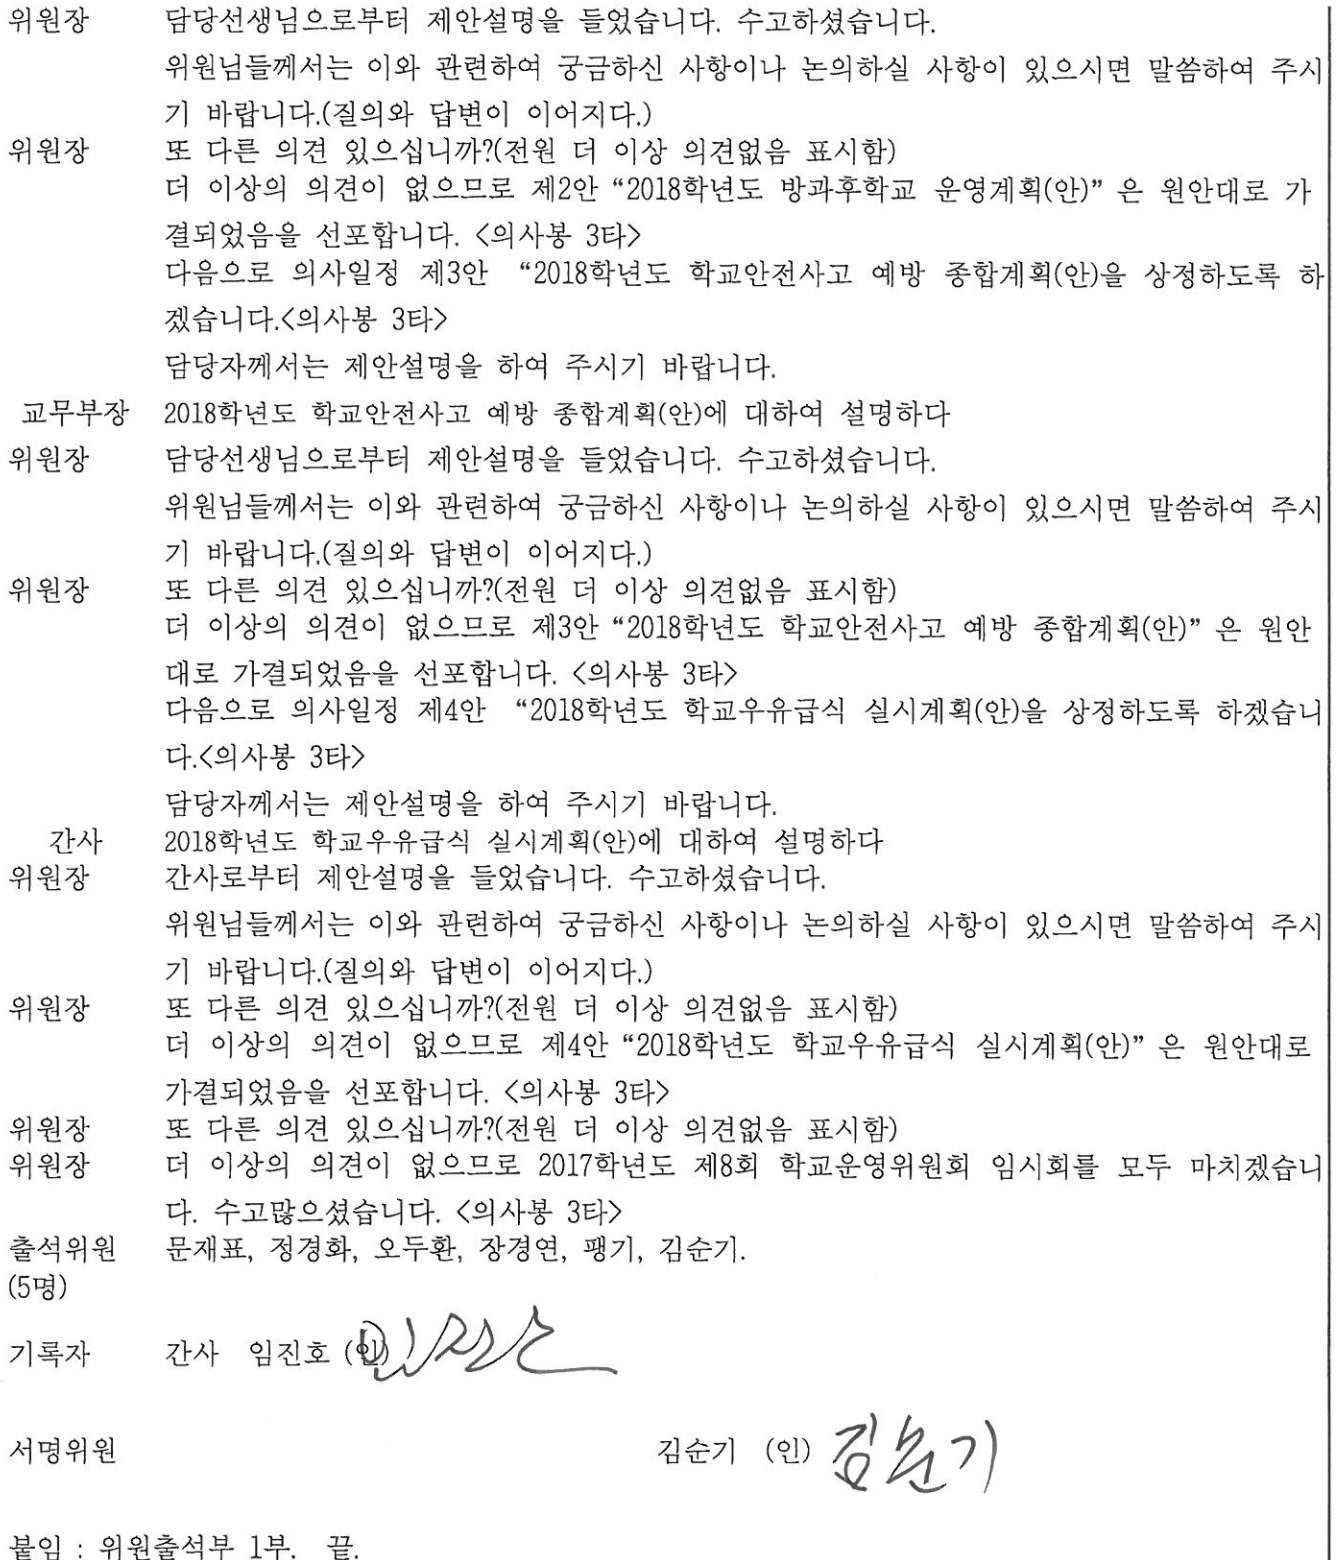 위원장 담당선생님으로부터 제안설명을 들었습니다. 수고하셨습니다.
위원님들께서는 이와 관련하여 궁금하신 사항이나 논의하실 사항이 있으시면 말씀하여 주시
기 바랍니다.(질의와 답변이 이어지다.)
위원장 또 다른 의견 있으십니까?(전원 더 이상 의견없음 표시함)
더 이상의 의견이 없으므로 제2안 “2018학년도 방과후학교 운영계획(안)” 은 원안대로 가
결되었음을 선포합니다. <의사봉 3타>
다음으로 의사일정 제3안 “2018학년도 학교안전사고 예방 종합계획(안)을 상정하도록 하
겠습니다.<의사봉 3타>
담당자께서는 제안설명을 하여 주시기 바랍니다.
교무부장 2018학년도 학교안전사고 예방 종합계획(안)에 대하여 설명하다
위원장 담당선생님으로부터 제안설명을 들었습니다. 수고하셨습니다.
위원님들께서는 이와 관련하여 궁금하신 사항이나 논의하실 사항이 있으시면 말씀하여 주시
기 바랍니다.(질의와 답변이 이어지다.)
위원장 또 다른 의견 있으십니까?(전원 더 이상 의견없음 표시함)
더 이상의 의견이 없으므로 제3안 “2018학년도 학교안전사고 예방 종합계획(안)” 은 원안
대로 가결되었음을 선포합니다. <의사봉 3타>
다음으로 의사일정 제4안 “2018학년도 학교우유급식 실시계획(안)을 상정하도록 하겠습니
다.<의사봉 3타>
담당자께서는 제안설명을 하여 주시기 바랍니다.
간사 2018학년도 학교우유급식 실시계획(안)에 대하여 설명하다
위원장 간사로부터 제안설명을 들었습니다. 수고하셨습니다.
위원님들께서는 이와 관련하여 궁금하신 사항이나 논의하실 사항이 있으시면 말씀하여 주시
기 바랍니다.(질의와 답변이 이어지다.)
위원장 또 다른 의견 있으십니까?(전원 더 이상 의견없음 표시함)
더 이상의 의견이 없으므로 제4안 “2018학년도 학교우유급식 실시계획(안)” 은 원안대로
가결되었음을 선포합니다. <의사봉 3타>
위원장 또 다른 의견 있으십니까?(전원 더 이상 의견없음 표시함)
위원장 더 이상의 의견이 없으므로 2017학년도 제8회 학교운영위원회 임시회를 모두 마치겠습니
다. 수고많으셨습니다. <의사봉 3타>
출석위원 문재표, 정경화, 오두환, 장경연, 팽기, 김순기.
(5명)
기록자 간사 임진호 (인)
서명위원 김순기 (인) 김순기
붙임 : 위원출석부 1부. 끝.